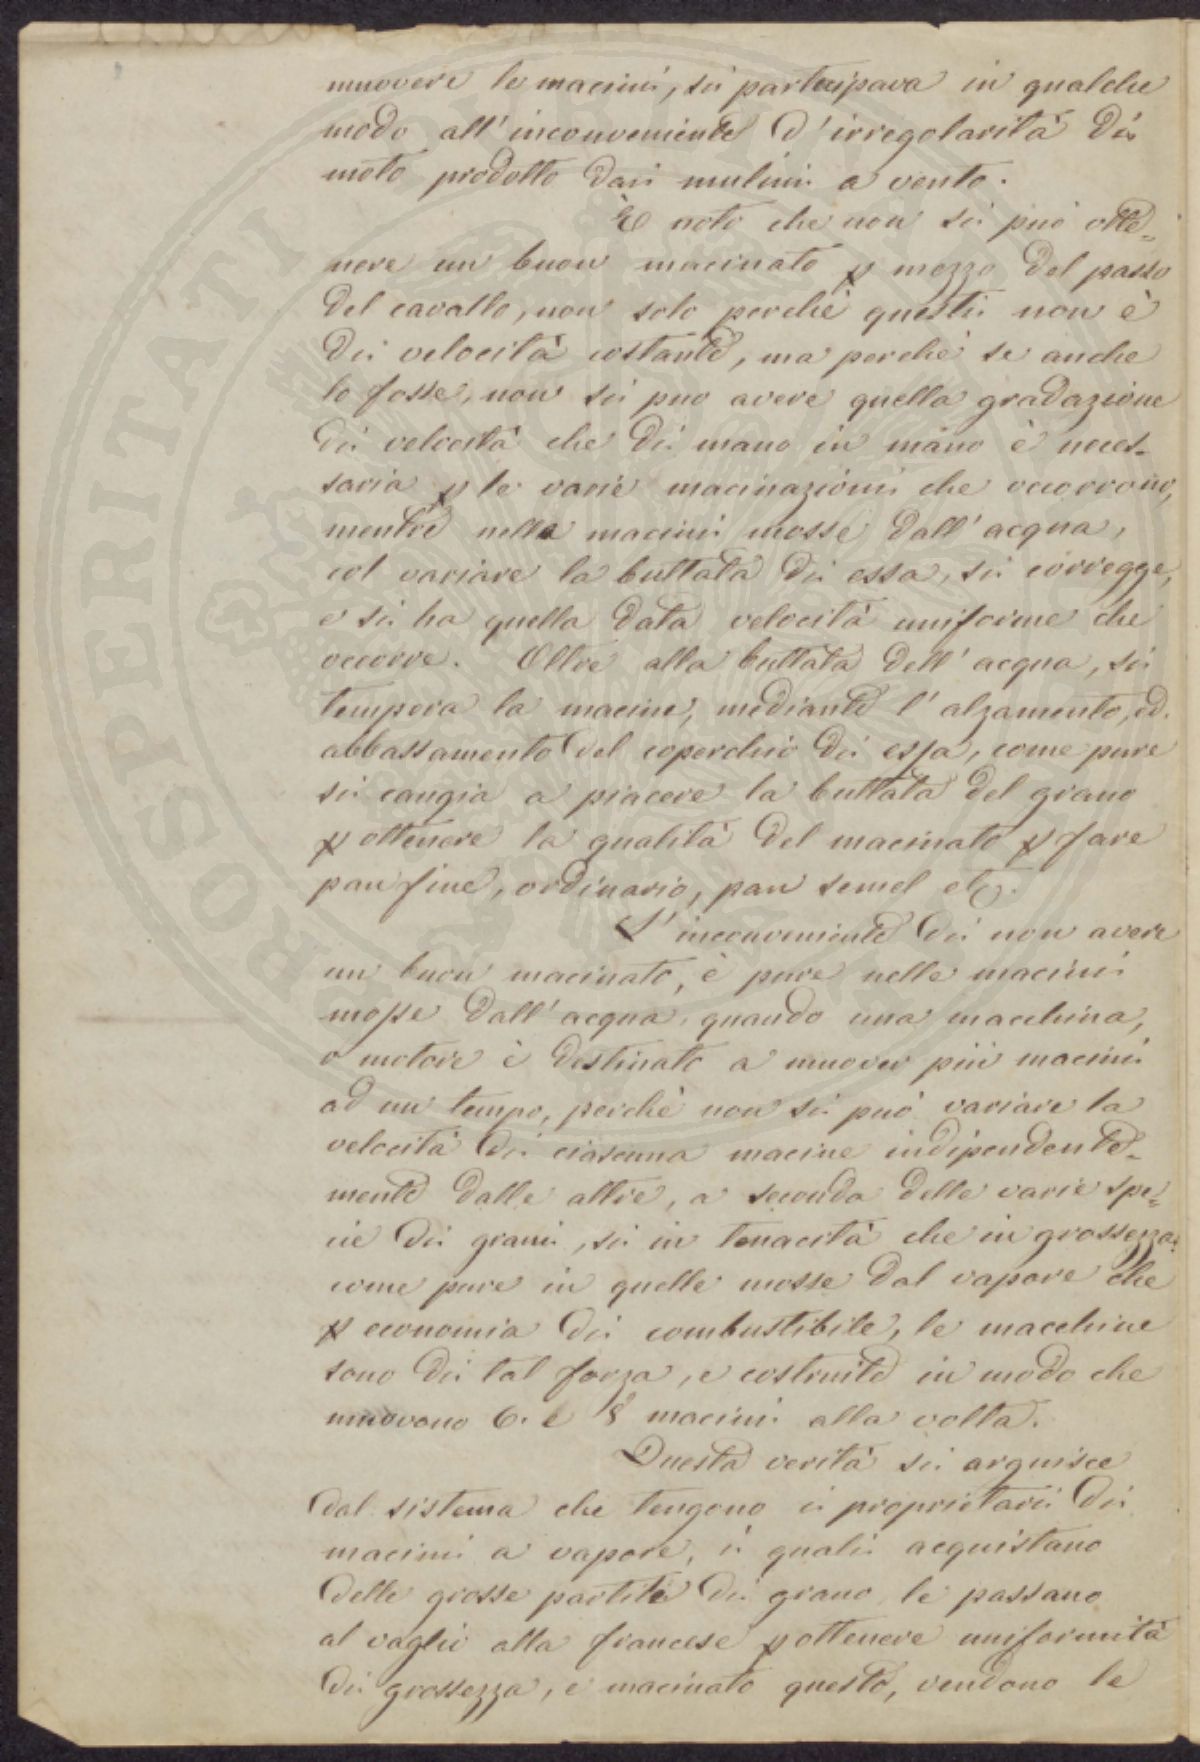 muovere le macini, si partecipava in qualche
modo all'inconveniente d'irregolarità di
moto prodotto dai mulini a vento.
È noto che non si può otte=
nere un buon macinato p mezzo del passo
del cavallo, non solo perchè questi non è
di velocità costante, ma perchè se anche
lo fosse, non si può avere quella gradazione
di velocità che di mano in mano è neces-
saria p le varie macinazioni che occorrono,
mentre nelle macini mosse dall'acqua,
col variare la buttata di essa, si corregge,
e si ha quella data velocità uniforme che
occorre. Oltre alla buttata dell'acqua, si
tempera la macine, mediante l'alzamento, ed
abbassamento del coperchio di essa, come pure
si cangia a piacere la buttata del grano
p ottenere la qualità del macinato p fare
pan fine, ordinario, pan semel etc.
L'inconveniente di non avere
un buon macinato, è pure nelle macini
mosse dall'acqua, quando una macchina,
o motore è destinato a muover più macini
ad un tempo, perchè non si può variare la
velocità di ciascuna macine indipendente=
mente dalle altre, a seconda delle varie spe=
cie di grani, sì in tenacità che in grossezza:
come pure in quelle mosse dal vapore che
p economia di combustibile, le macchine
sono di tal forza, e costruite in modo che
muovono 6. e 8 macini alla volta.
Questa verità si arguisce
dal sistema che tengono i proprietarii di
macini a vapore, i quali acquistano
delle grosse partite di grano, le passano
al vaglio alla francese p ottenere uniformità
di grossezza, e macinato questo, vendono le
PROSPERITATI PUBLICAE